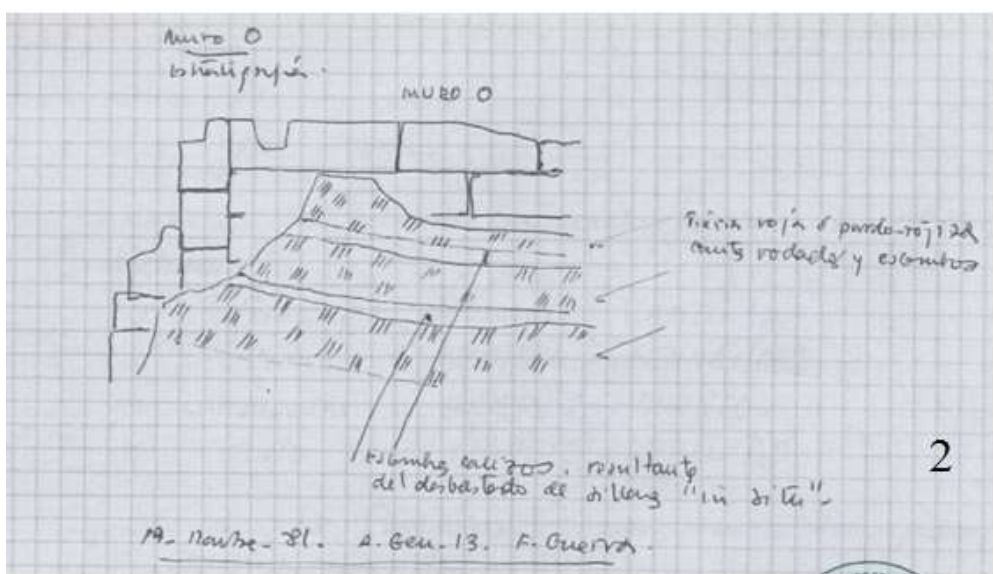 Muro O
Estratigrafía.
MURO O
Tierra roja ó pardo-rojiza
cants rodados y escombros
Escombros calizos, resultante
del desbastado de sillares "in situ"-
2
A. Gen. 13. F. Guerra.